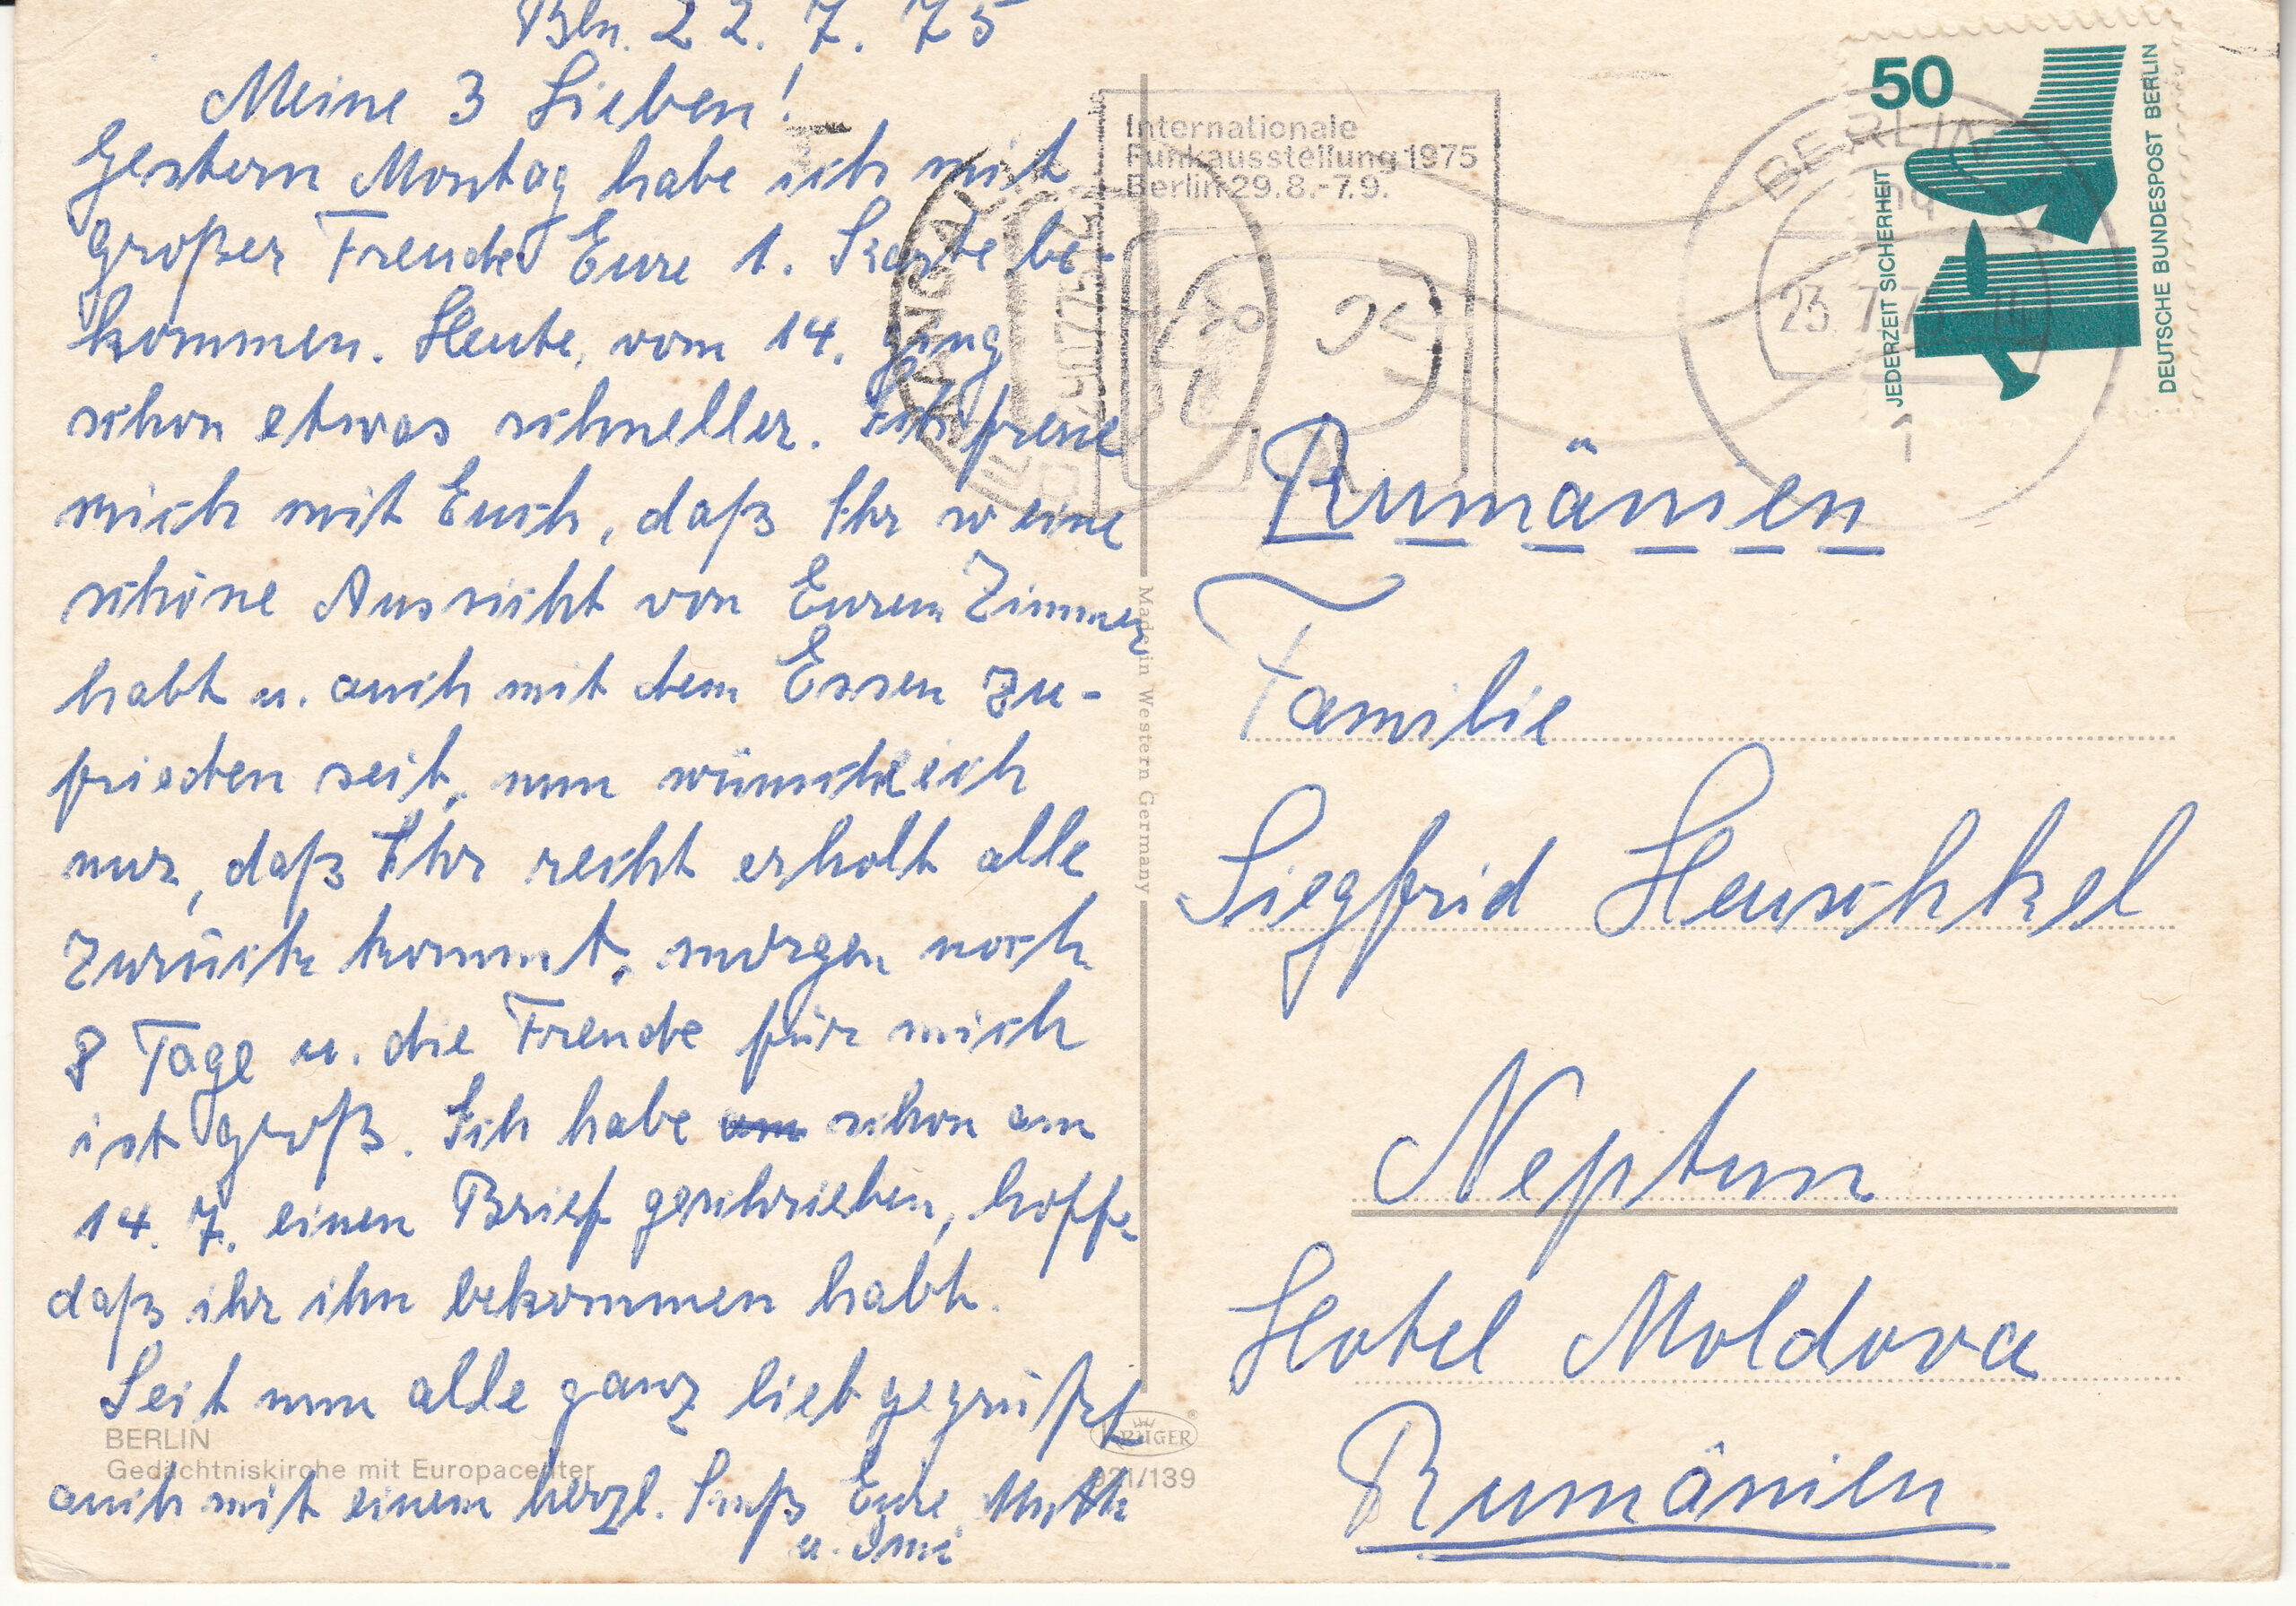 Bln. 22. 7. 75
Meine 3 Lieben!
Gestern Montag habe ich mit
großer Freude Eure 1. Karte be-
kommen. Heute, vom 14. ging
schon etwas schneller. Ich freue
mich mit Euch, daß Ihr so eine
schöne Aussicht von Eurem Zimmer
habt u. auch mit dem Essen zu-
frieden seit, nun wünsche ich
nur, daß Ihr recht erholt alle
zurück kommt, morgen noch
8 Tage u. die Freude für mich
ist groß. Ich habe schon am
14. 7. einen Brief geschrieben, hoffe
daß ihr ihn bekommen habt.
Seit nun alle ganz lieb gegrüßt
auch mit einem herzl. Kuß Eure Mutti
u. Omi
BERLIN
Gedächtniskirche mit Europacenter
Made in Western Germany
KRÜGER
921/139
Internationale
Funkausstellung 1975
Berlin 29.8.-7.9.
BERLIN
23.7.75
1
MANGALIA
50
JEDERZEIT SICHERHEIT
DEUTSCHE BUNDESPOST BERLIN
Rumänien
Familie
Siegfrid Heuschkel
Neptun
Hotel Moldova
Rumänien